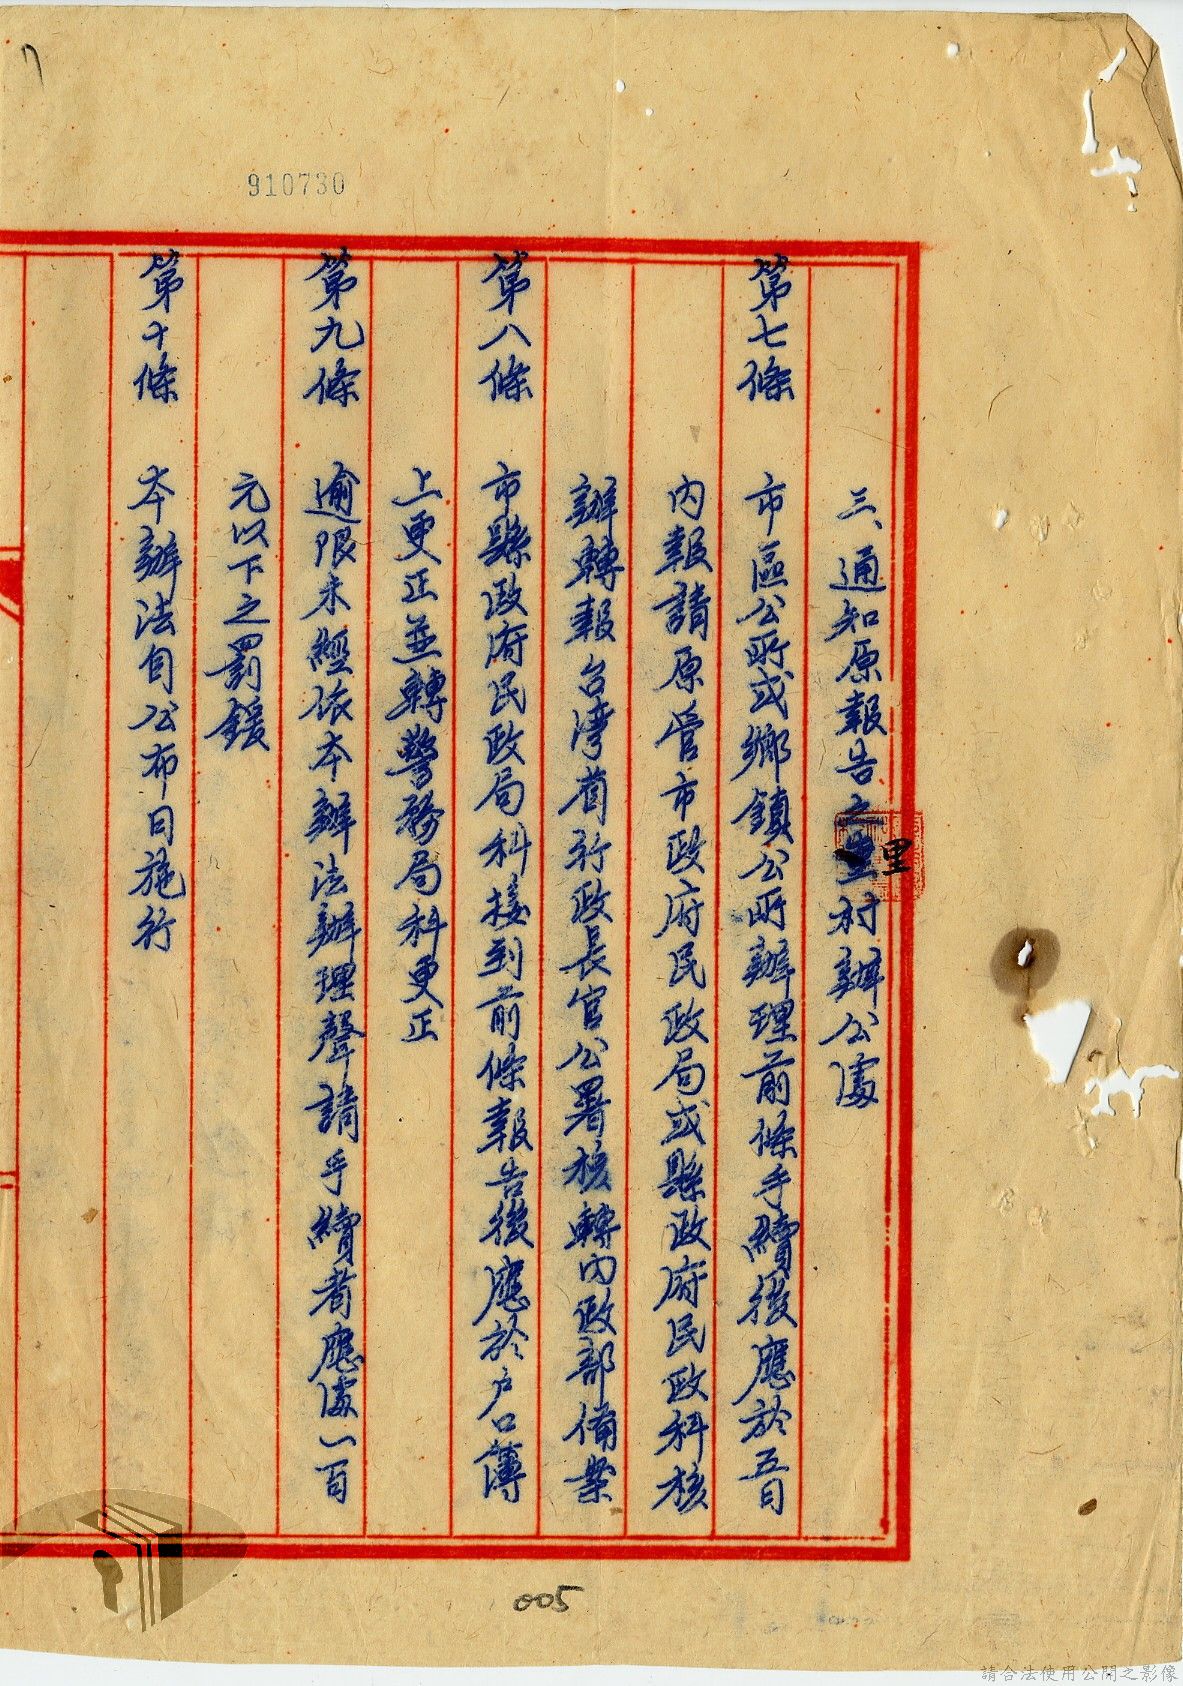 910730
三、通知原報告之里村辦公處
第七條 市區公所或鄉鎮公所辦理前條手續後應於五日
內報請原管市政府民政局或縣政府民政科核
辦轉報台湾省行政長官公署核轉內政部備案
第八條 市縣政府民政局科接到前條報告後應於户口簿
上更正並轉警務局科更正
第九條 逾限未經依本辦法辦理聲請手續者應處一百
元以下之罰鍰
第十條 本辦法自公布日施行
005
請合法使用公開之影像